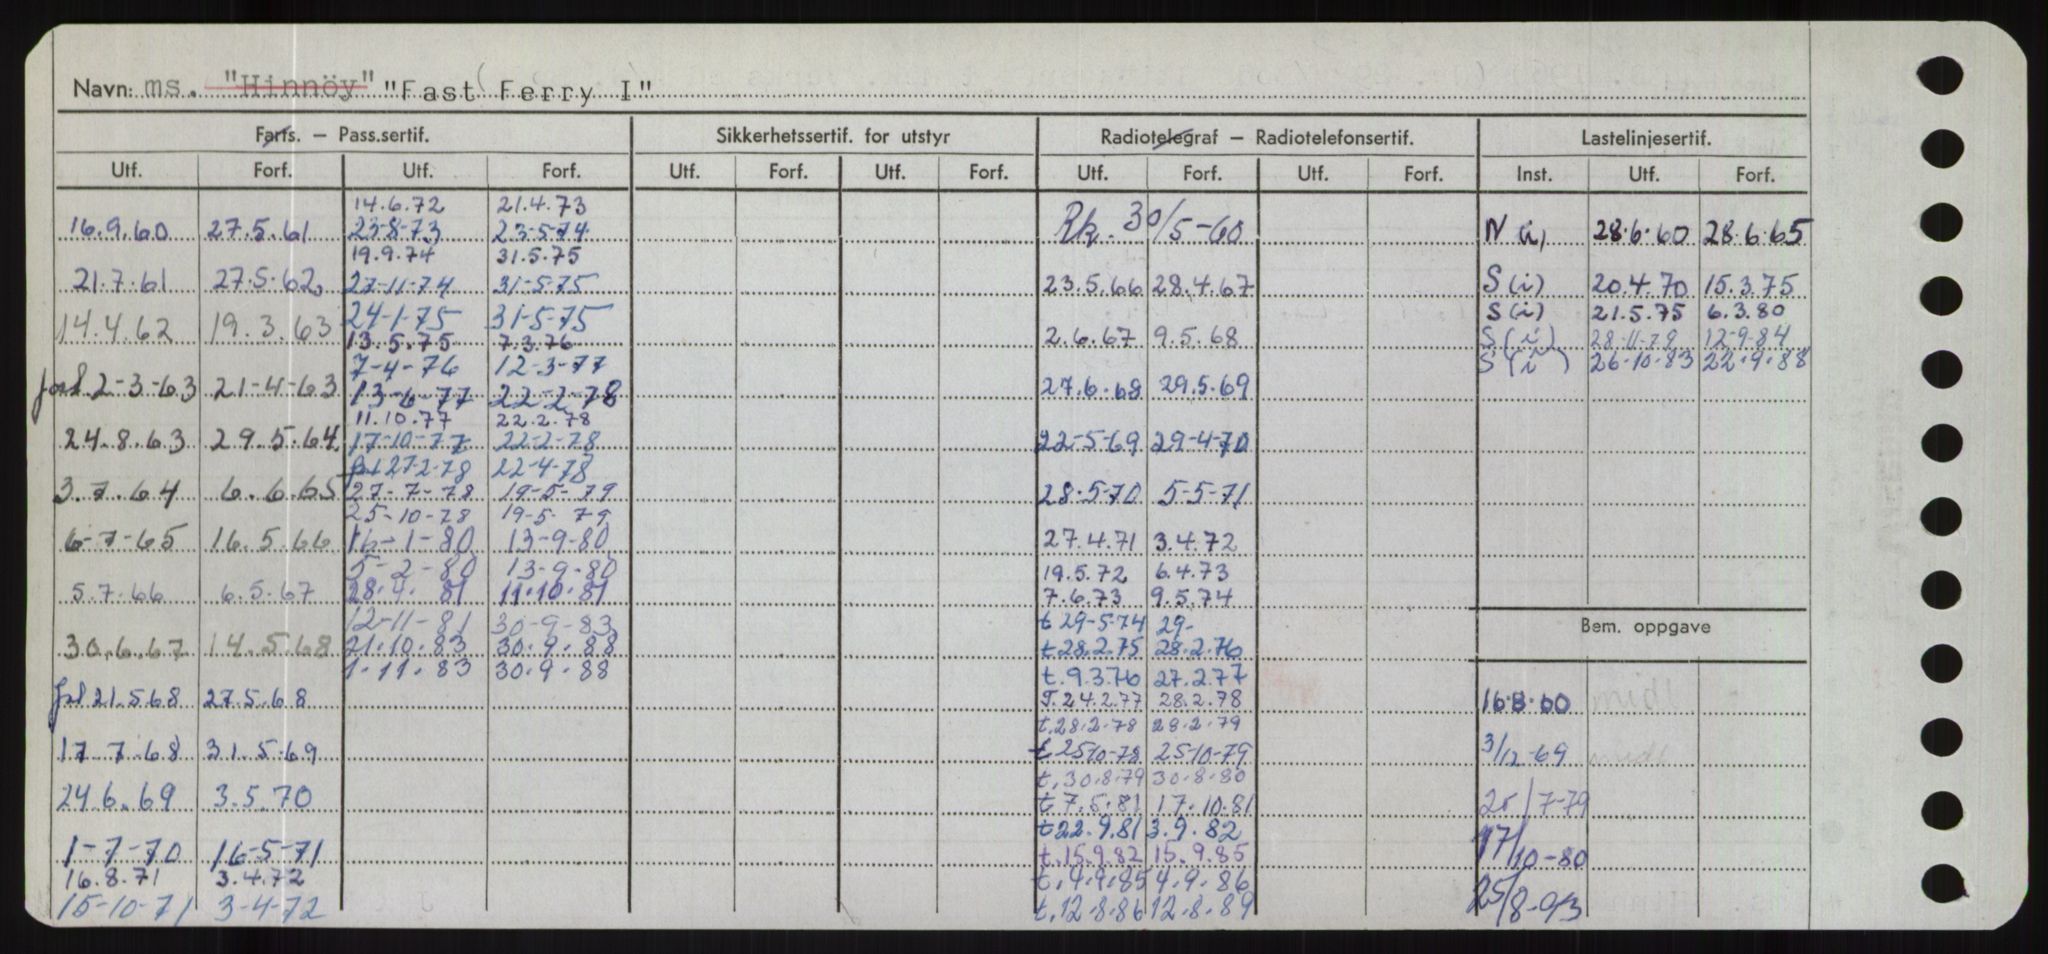 Navn: ms. "Hinnöy" "Fast Ferry I"
Farts. — Pass.sertif. Sikkerhetssertif. for utstyr Radiotelegraf — Radiotelefonsertif. Lastelinjesertif.
Utf. Forf. Utf. Forf. Utf. Forf. Utf. Forf. Utf. Forf. Utf. Forf. Inst. Utf. Forf.
14.6.72 21.4.73
16.9.60 27.5.61 23-8-73 23-5-74 Rk. 30/5-60 N (i) 28.6.60 28.6.65
19.9.74 31.5.75
21.7.61 27.5.62 27-11-74 31-5-75 23.5.66 28.4.67 S (i) 20.4.70 15.3.75
24-1-75 31-5-75 S (i) 21.5.75 6.3.80
14.4.62 19.3.63 13.5.75 7.3.76 2.6.67 9.5.68 S (i) 28-11-79 12-9-84
7-4-76 12-3-77 S (i) 26-10-83 22.9.88
forl 2-3-63 21-4-63 13-6-77 22-2-78 27.6.68 29.5.69
11.10.77 22.2.78
24.8.63 29.5.64 17-10-77 22-2-78 22-5-69 29-4-70
forl 27-2-78 22-4-78
3.7.64 6.6.65 27-7-78 19-5-79 28.5.70 5-5-71
25-10-78 19-5 79
6-7-65 16.5.66 16-1-80 13-9-80 27.4.71 3.4.72
5-2-80 13-9-80 19.5.72 6.4.73
5.7.66 6.5.67 28.4.81 11.10.81 7.6.73 9.5.74
12-11-81 30-9-83 t 29-5-74 29- Bem. oppgave
30.6.67 14.5.68 21.10.83 30.9.88 t.28.2.75 28.2.76
1.11.83 30.9.88 t.9.3.76 27.2.77
forl 21.5.68 27.5.68 T.24.2.77 28.2.78 16.8.60
t.28.2.78 28.2.79
17.7.68 31.5.69 t 25-10-78 25-10-79 3/12-69
t.30.8.79 30.8.80
24.6.69 3.5.70 t.7.5.81 17.10.81 25/7-79
t 22.9.81 3.9.82
1-7-70 16-5-71 t.15.9.82 15.9.85 17/10-80
16.8.71 3.4.72 t.4.9.85 4.9.86
15-10-71 3-4-72 t.12.8.86 12.8.89 25/8-93